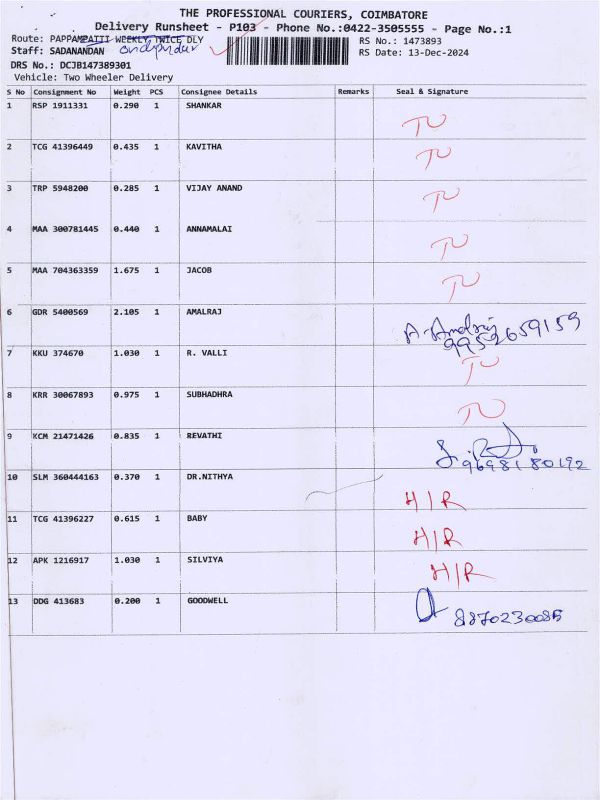 THE PROFESSIONAL COURIERS, COIMBATORE
Delivery Runsheet - P103 - Phone No.:0422-3505555 - Page No.:1
Route: PAPPAMPATTI WEEKLY TWICE DLY
RS No.: 1473893
Staff: SADANANDAN
RS Date: 13-Dec-2024
DRS No.: DCJB147389301
Vehicle: Two Wheeler Delivery
S No Consignment No Weight PCS Consignee Details Remarks Seal & Signature
1 RSP 1911331 0.290 1 SHANKAR
TU
2 TCG 41396449 0.435 1 KAVITHA
TU
3 TRP 5948200 0.285 1 VIJAY ANAND
TU
4 MAA 300781445 0.440 1 ANNAMALAI
TU
5 MAA 704363359 1.675 1 JACOB
TU
6 GDR 5400569 2.105 1 AMALRAJ
A. Amalraj
9952659159
7 KKU 374670 1.030 1 R. VALLI
TU
8 KRR 30067893 0.975 1 SUBHADHRA
TU
9 KCM 21471426 0.835 1 REVATHI
9698180192
10 SLM 360444163 0.370 1 DR.NITHYA
H/R
11 TCG 41396227 0.615 1 BABY
H/R
12 APK 1216917 1.030 1 SILVIYA
H/R
13 DDG 413683 0.200 1 GOODWELL
8870230085